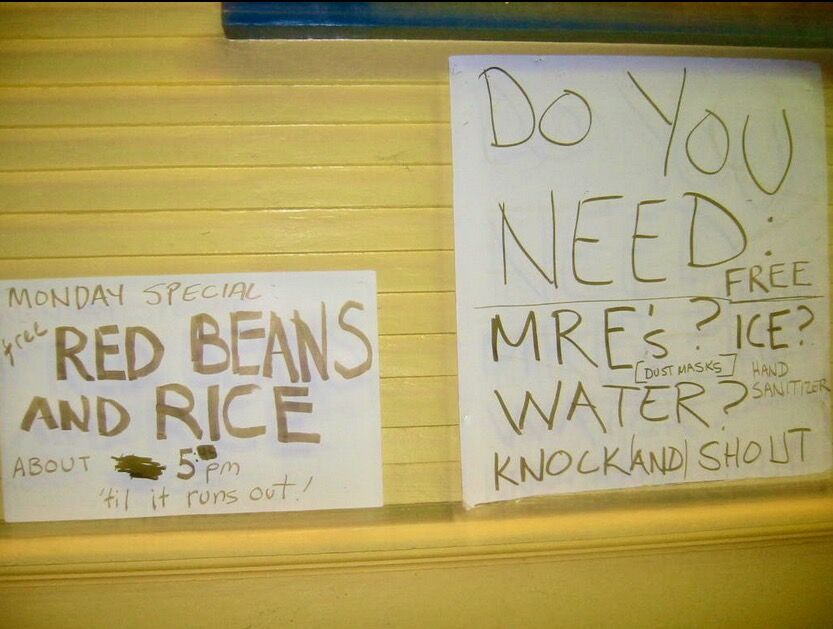 MONDAY SPECIAL:
free RED BEANS
AND RICE
ABOUT 5 pm
'til it runs out!
DO YOU
NEED:
FREE
MRE's? ICE?
[DUST MASKS] HAND
WATER? SANITIZER
KNOCK AND SHOUT